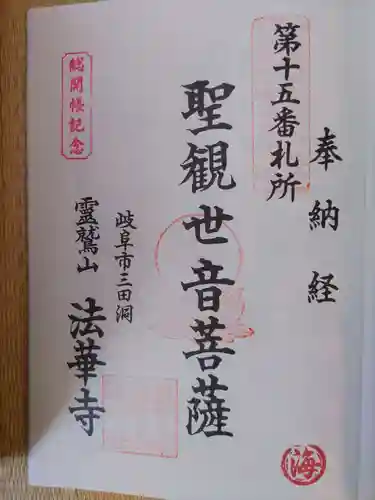 奉納経
第十五番札所
聖観世音菩薩
岐阜市三田洞
霊鷲山
法華寺
総開帳記念
海